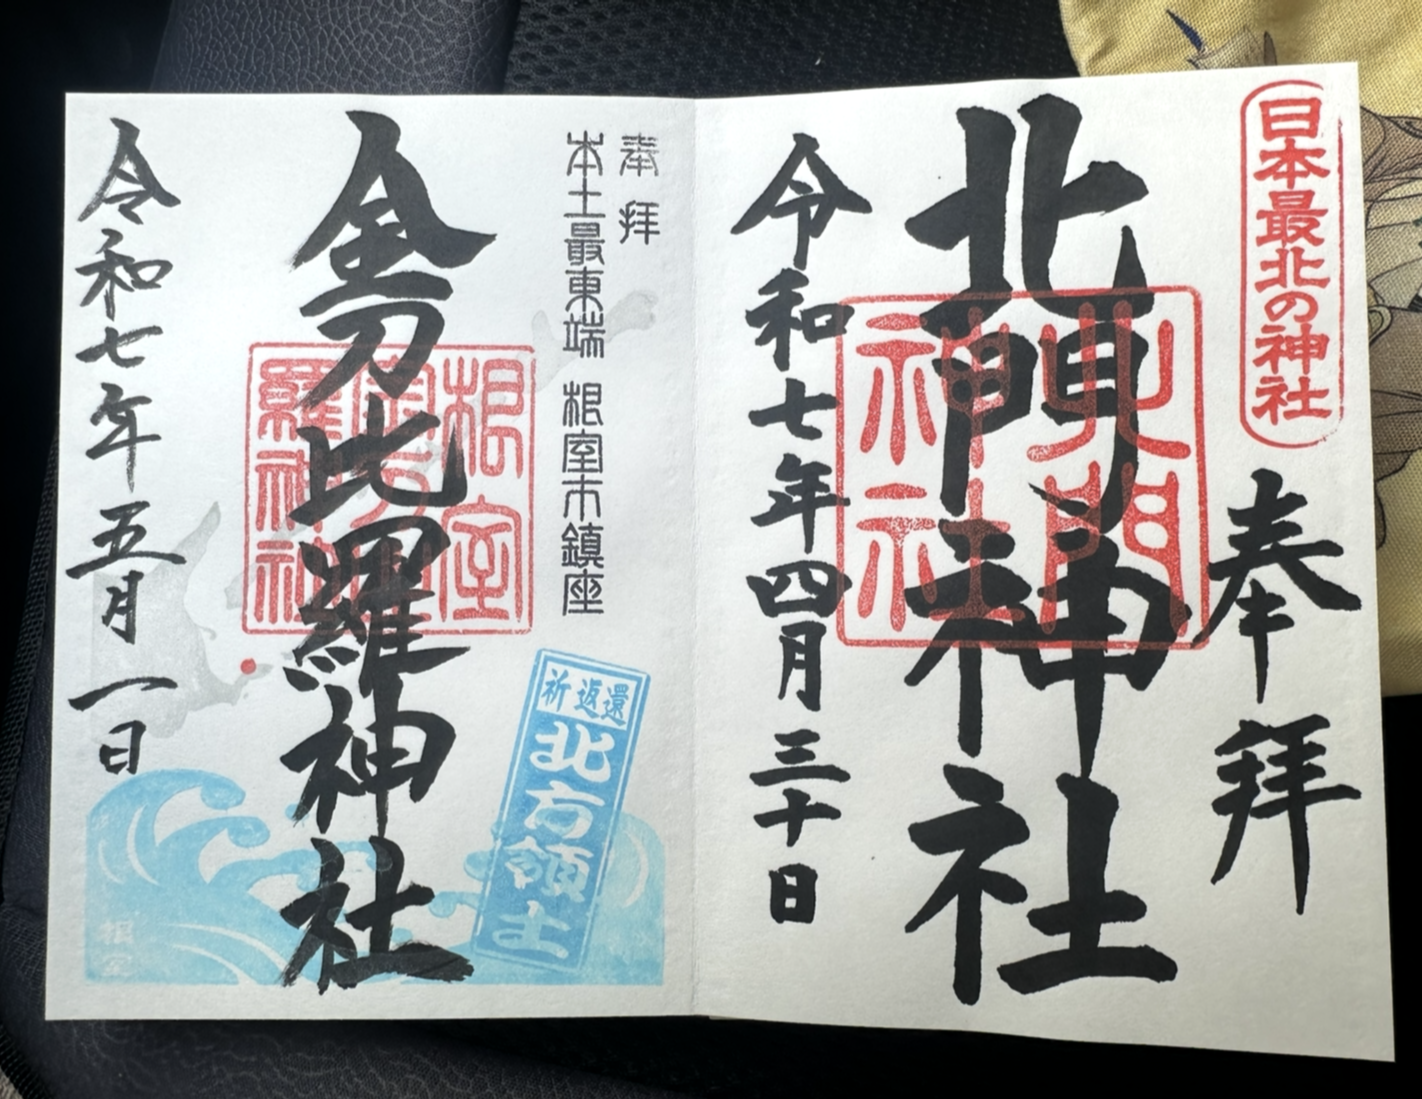 日本最北の神社
奉拝
北門神社
北門
神社
令和七年四月三十日
奉拝
本土最東端 根室市鎮座
金刀比羅神社
根室
羅神社
祈返還
北方領土
令和七年五月一日
根室